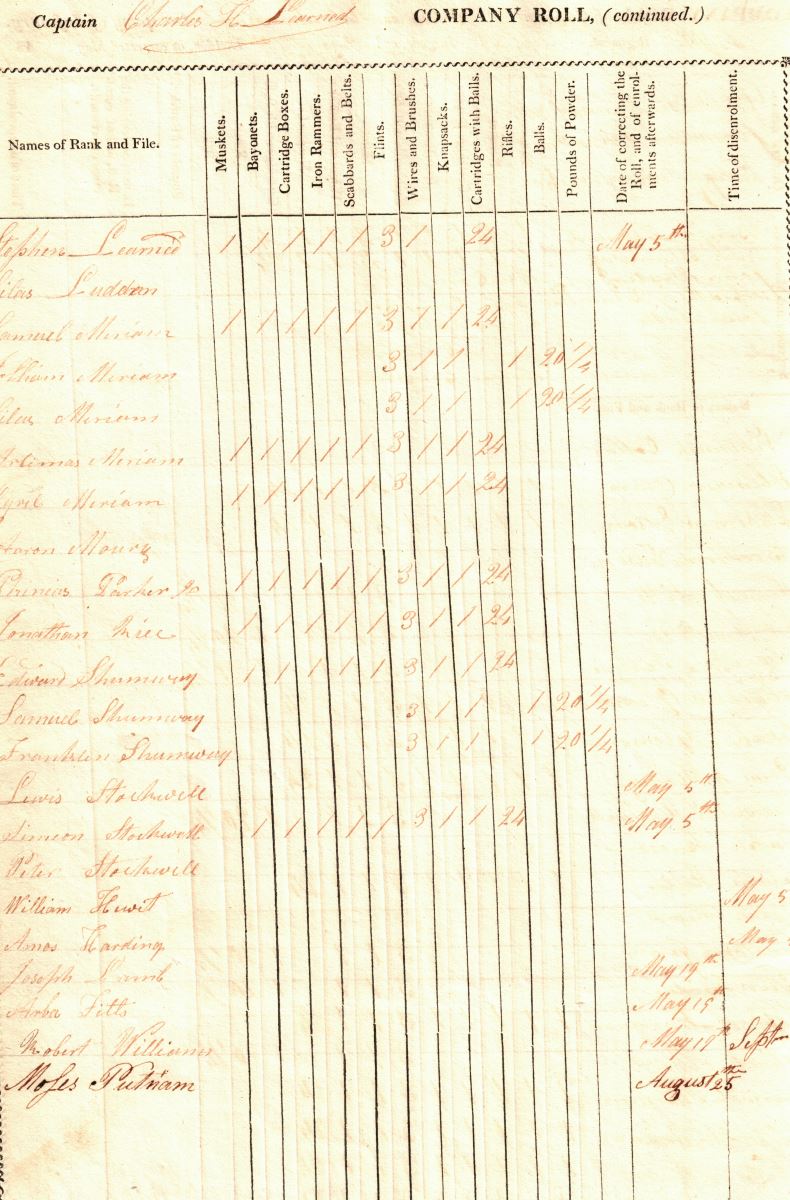 Captain Charles H Learned COMPANY ROLL, (continued.)
Names of Rank and File. Muskets. Bayonets. Cartridge Boxes. Iron Rammers. Scabbards and Belts. Flints. Wires and Brushes. Knapsacks. Cartridges with Balls. Rifles. Balls. Pounds of Powder. Date of correcting the Roll, and of enrolments afterwards. Time of disenrolment.
Stephen Learned 1 1 1 1 1 3 1 24 May 5th
Silas Luddan
Samuel Miriam 1 1 1 1 1 3 1 1 24
Miriam 3 1 1 1 20 1/4
Silas Miriam 3 1 1 1 20 1/4
Artimas Miriam 1 1 1 1 1 3 1 1 24
Miriam 1 1 1 1 1 3 1 1 24
Aaron
Parker Jr 1 1 1 1 1 3 1 1 24
Jonathan Rice 1 1 1 1 1 3 1 1 24
Edward Shumway 1 1 1 1 1 3 1 1 24
Samuel Shumway 3 1 1 1 20 1/4
Franklin Shumway 3 1 1 1 20 1/4
Lewis Stockwell May 5th
Simeon Stockwell 1 1 1 1 1 3 1 1 24 May 5th
Peter Stockwell
William Hewit May 5
Amos Harding May
Joseph Lamb May 19th
Arba Fitts May 15th
Robert Williams May 19th Sept
Moses Putnam August 25th